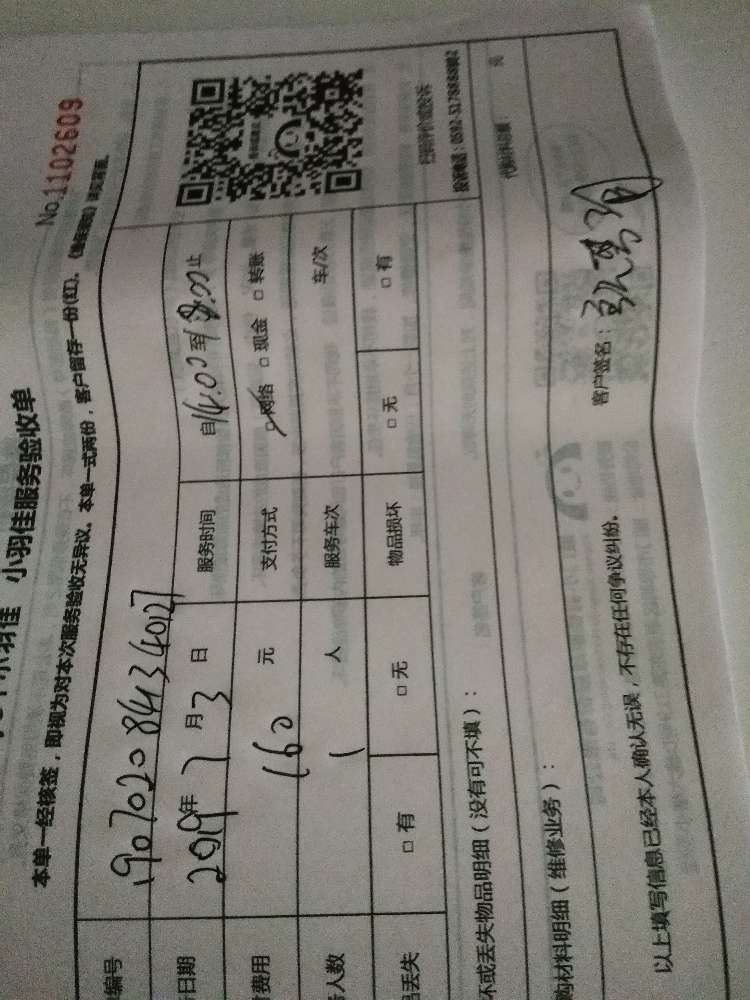 小羽佳 小羽佳服务验收单
No.1102609
本单一经核签，即视为对本次服务验收无异议。本单一式两份，客户留存一份(红)。
编号 1907020841340127
日期 2019年7月3日 服务时间 自16:00至18:00止
费用 160元 支付方式 □网络 □现金 □转账
人数 1人 服务车次 车/次
丢失 □有 □无 物品损坏 □无 □有
扫码评价或投诉
坏或丢失物品明细（没有可不填）：
购材料明细（维修业务）：
元
以上填写信息已经本人确认无误，不存在任何争议纠纷。
客户签名：